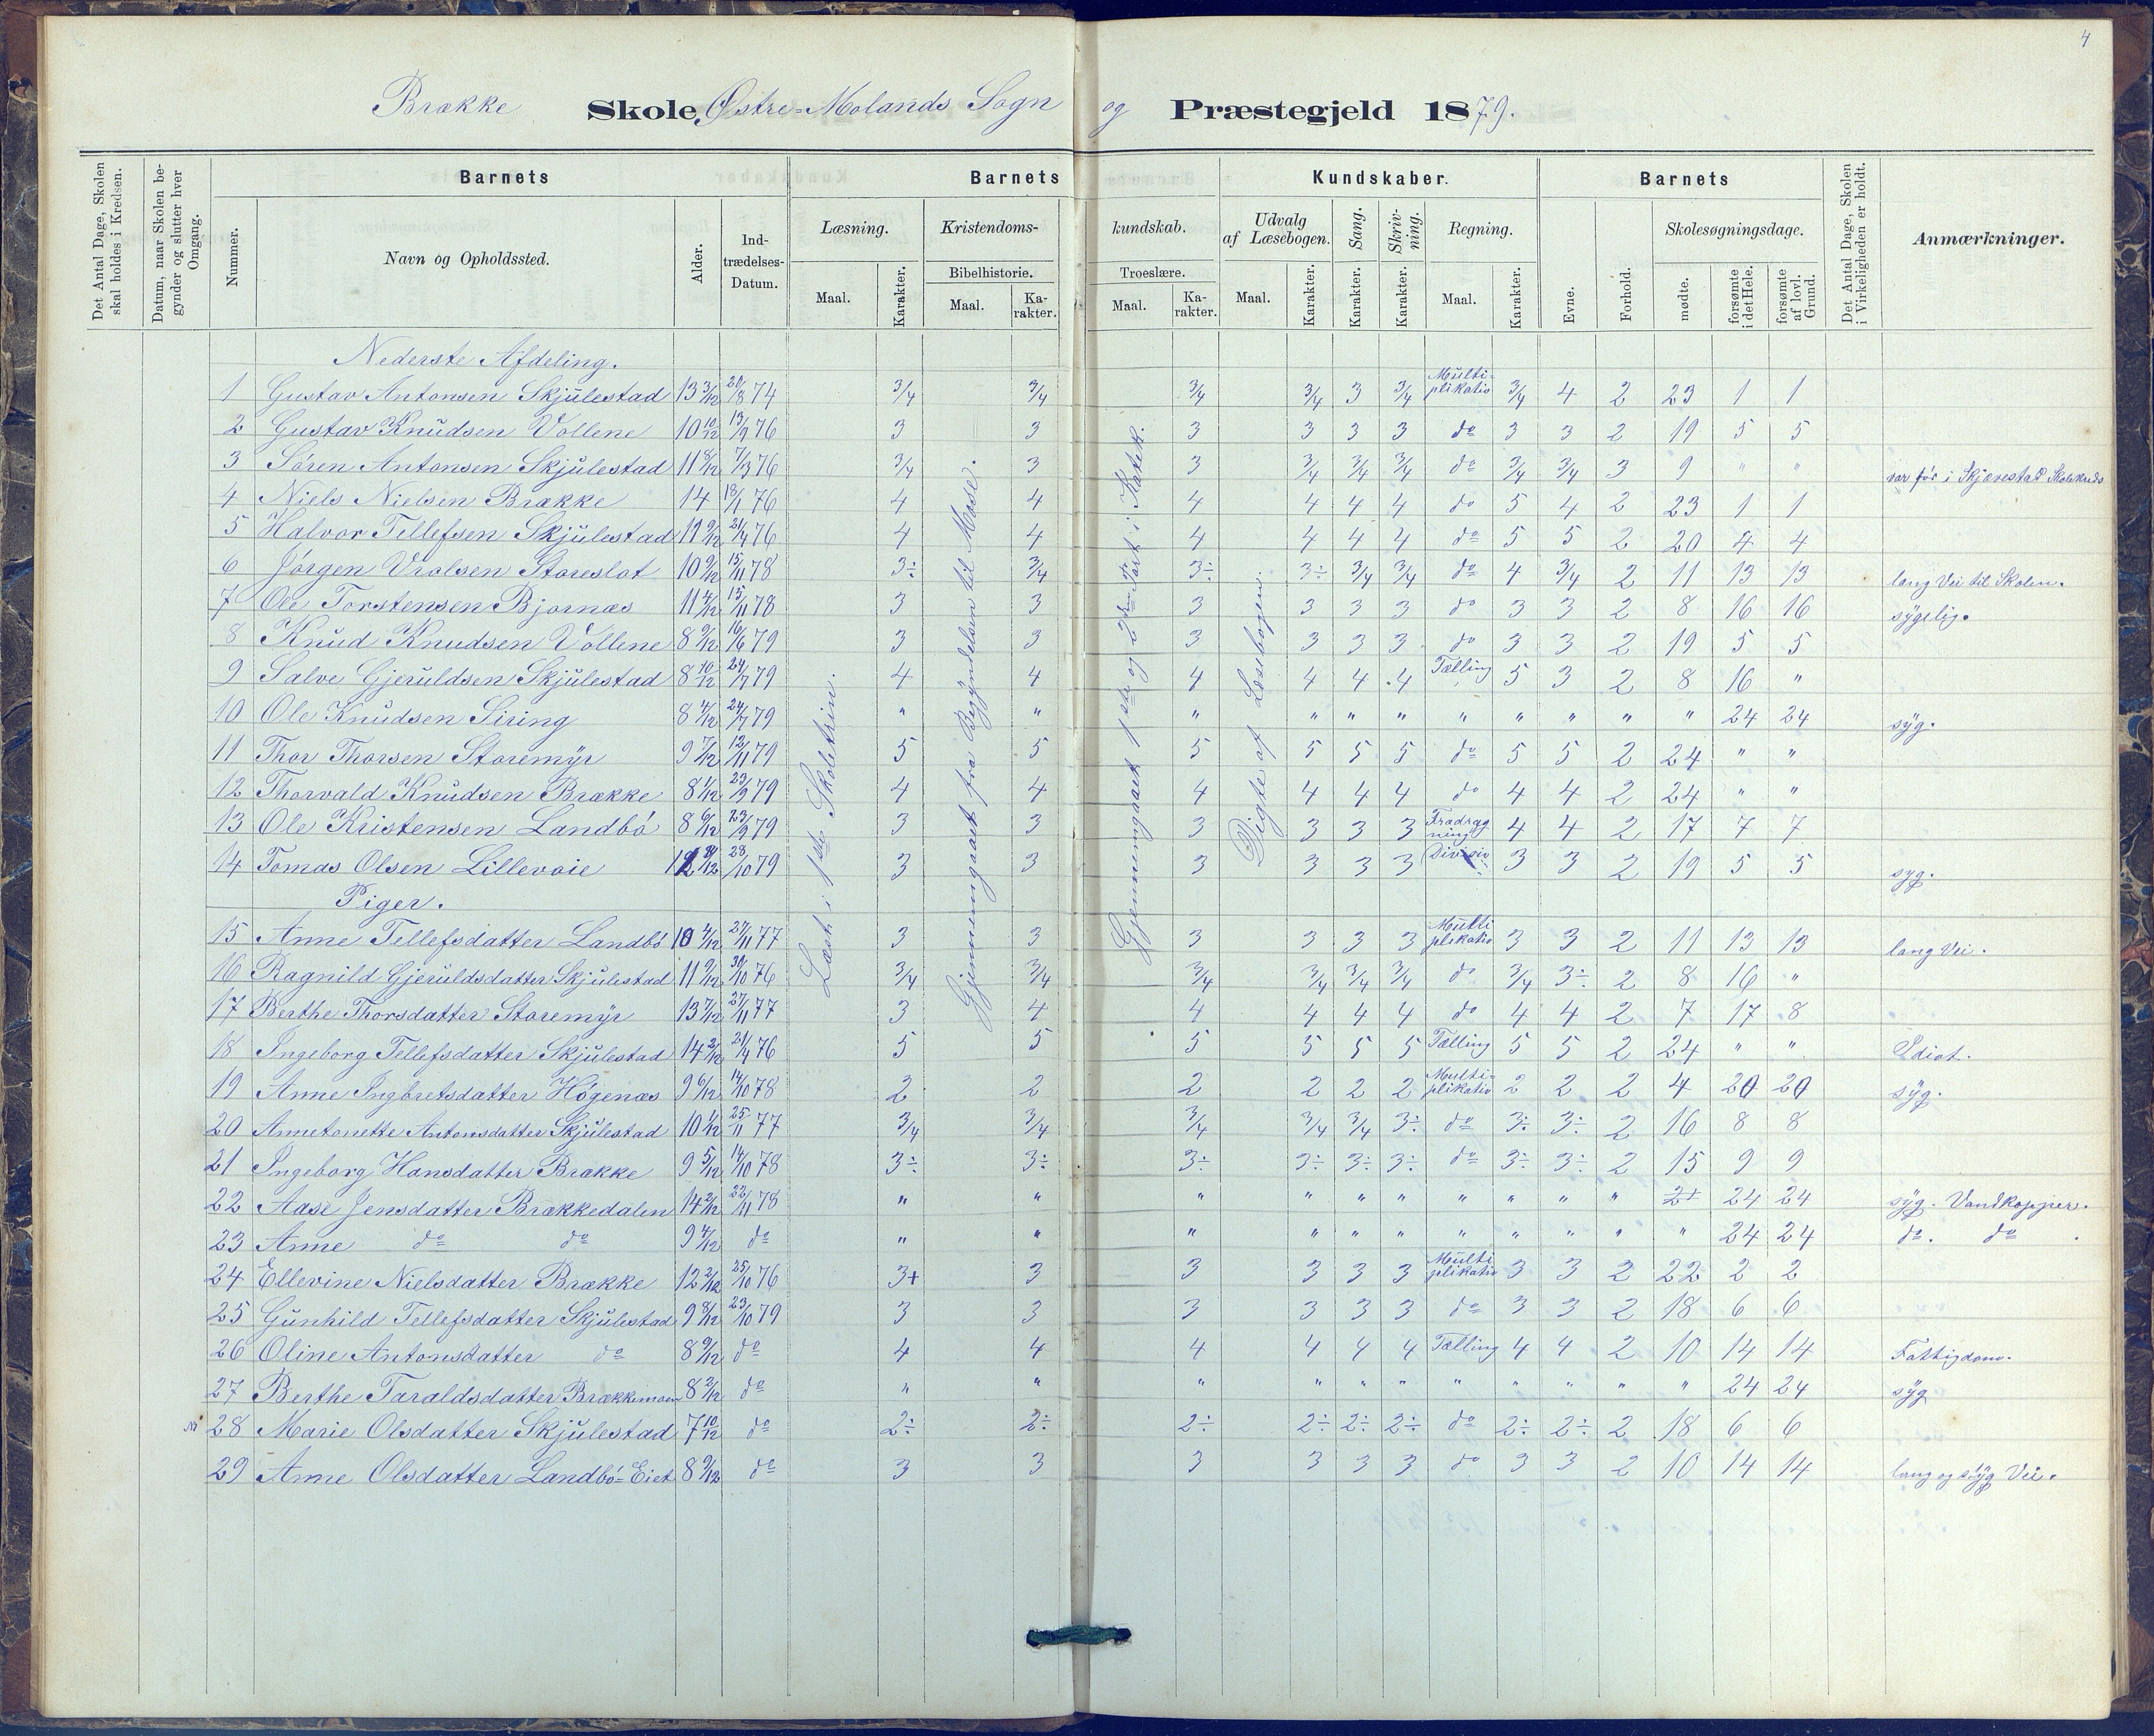 4
Brække Skole, Østre-Molands Sogn og Præstegjeld 1879.
Det Antal Dage, Skolen skal holdes i Kredsen.
Datum, naar Skolen begynder og slutter hver Omgang.
Barnets
Nummer.
Navn og Opholdssted.
Alder.
Indtrædelses-Datum.
Barnets Kundskaber.
Læsning.
Maal.
Karakter.
Kristendomskundskab.
Bibelhistorie.
Maal.
Karakter.
Troeslære.
Maal.
Karakter.
Udvalg af Læsebogen.
Maal.
Karakter.
Sang.
Karakter.
Skrivning.
Karakter.
Regning.
Maal.
Karakter.
Barnets
Evne.
Forhold.
Skolesøgningsdage.
mødte.
forsømte i det Hele.
forsømte af lovl. Grund.
Det Antal Dage, Skolen i Virkeligheden er holdt.
Anmærkninger.
Læst i 1ste Skoletrin.
Gjennemgaaet fra Begyndelsen til Mose.
Gjennemgaaet 1ste og 2den Part i Katek.
Digte af Læsebogen.
Nederste Afdeling.
1 Gustav Antonsen Skjulestad 13 3/12 20/8 74 3/4 3/4 3/4 3/4 3 3/4 Multiplikatio 3/4 4 2 23 1 1
2 Gustav Knudsen Vollene 10 10/12 13/9 76 3 3 3 3 3 3 do 3 3 2 19 5 5
3 Søren Antonsen Skjulestad 11 8/12 7/3 76 3/4 3 3 3/4 3/4 3/4 do 3/4 3/4 3 9 " " var før i Skjævestad Skolekreds
4 Niels Nielsen Brække 14 18/1 76 4 4 4 4 4 4 do 5 4 2 23 1 1
5 Halvor Tellefsen Skjulestad 11 9/12 21/4 76 4 4 4 4 4 4 do 5 5 2 20 4 4
6 Jørgen Vrolsen Storeslot 10 9/12 15/11 78 3÷ 3/4 3÷ 3÷ 3/4 3/4 do 4 3/4 2 11 13 13 lang Vei til Skolen.
7 Ole Torstensen Bjornæs 11 4/12 15/11 78 3 3 3 3 3 3 do 3 3 2 8 16 16 sygelig.
8 Knud Knudsen Vollene 8 9/12 16/6 79 3 3 3 3 3 3 do 3 3 2 19 5 5
9 Salve Gjeruldsen Skjulestad 8 10/12 24/7 79 4 4 4 4 4 4 Tælling 5 3 2 8 16 "
10 Ole Knudsen Siring 8 4/12 24/7 79 " " " " " " " " " " " 24 24 syg.
11 Thor Thorsen Storemyr 9 7/12 12/11 79 5 5 5 5 5 5 do 5 5 2 24 " "
12 Thorvald Knudsen Brække 8 1/12 23/9 79 4 4 4 4 4 4 do 4 4 2 24 " "
13 Ole Kristensen Landbø 8 6/12 23/9 79 3 3 3 3 3 3 Fradragning 4 4 2 17 7 7
14 Tomas Olsen Lillevaie 12 28/10 79 3 3 3 3 3 3 Divisio 3 3 2 19 5 5 syg.
Piger.
15 Anne Tellefsdatter Landbø 10 4/12 27/11 77 3 3 3 3 3 3 Multiplikatio 3 3 2 11 13 13 lang Vei.
16 Ragnild Gjeruldsdatter Skjulestad 11 9/12 30/10 76 3/4 3/4 3/4 3/4 3/4 3/4 do 3/4 3÷ 2 8 16 "
17 Berthe Thorsdatter Storemyr 13 7/12 27/11 77 3 4 4 4 4 4 do 4 4 2 7 17 8
18 Ingeborg Tellefsdatter Skjulestad 14 2/12 21/4 76 5 5 5 5 5 5 Tælling 5 5 2 24 " " Idiot.
19 Anne Ingbretsdatter Høgenæs 9 6/12 14/10 78 2 2 2 2 2 2 Multiplikatio 2 2 2 4 20 20 syg.
20 Annetonette Antonsdatter Skjulestad 10 1/12 25/11 77 3/4 3/4 3/4 3/4 3/4 3÷ do 3÷ 3÷ 2 16 8 8
21 Ingeborg Hansdatter Brække 9 5/12 14/10 78 3÷ 3÷ 3÷ 3÷ 3÷ 3÷ do 3÷ 3÷ 2 15 9 9
22 Aase Jensdatter Brækkedalen 14 2/12 22/11 78 " " " " " " " " " " 24 24 syg. Vandkopper.
23 Anne do do 9 4/12 do " " " " " " " " " " " 24 24 do. do.
24 Ellevine Nielsdatter Brække 12 2/12 25/10 76 3+ 3 3 3 3 3 Multiplikatio 3 3 2 22 2 2
25 Gunhild Tellefsdatter Skjulestad 9 8/12 23/10 79 3 3 3 3 3 3 do 3 3 2 18 6 6
26 Oline Antonsdatter do 8 9/12 do 4 4 4 4 4 4 Tælling 4 4 2 10 14 14 Fattigdom.
27 Berthe Taraldsdatter Brækkemoen 8 2/12 do " " " " " " " " " " " 24 24 syg
28 Marie Olsdatter Skjulestad 7 10/12 do 2÷ 2÷ 2÷ 2÷ 2÷ 2÷ do 2÷ 2÷ 2 18 6 6
29 Anne Olsdatter Landbø-Eiet 8 9/12 do 3 3 3 3 3 3 do 3 3 2 10 14 14 lang og syg Vei.